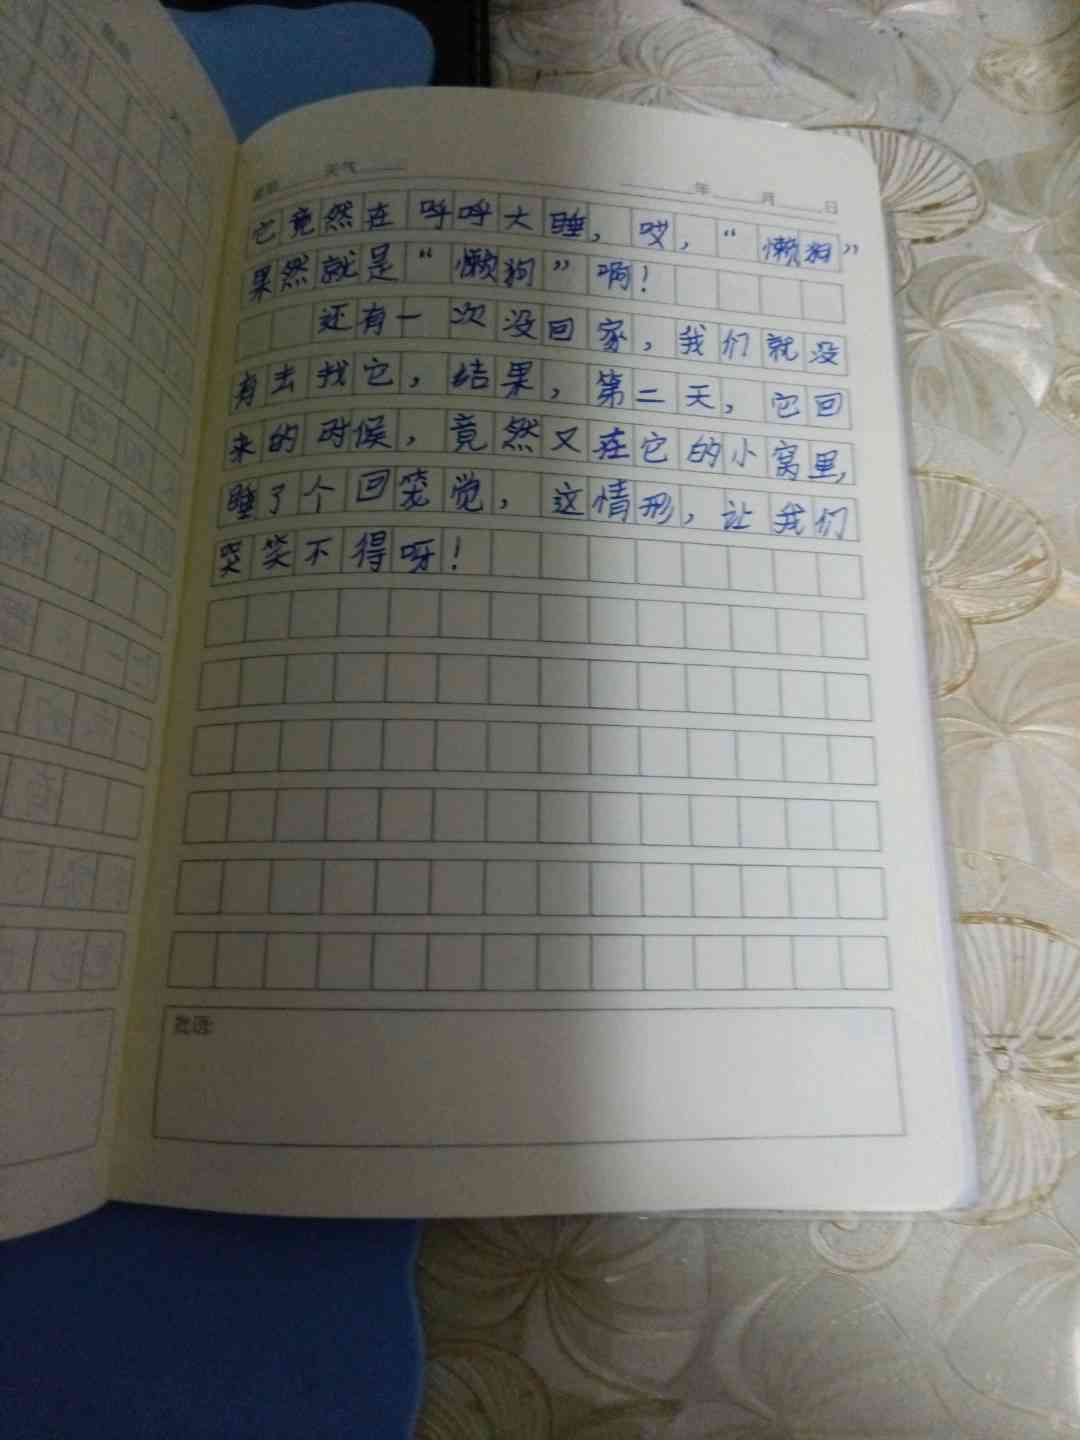 天气
年 月 日
它竟然在呼呼大睡，哎，“懒狗”
果然就是“懒狗”啊！
还有一次没回家，我们就没
有去找它，结果，第二天，它回
来的时候，竟然又在它的小窝里，
睡了个回笼觉，这情形，让我们
哭笑不得呀！
批语: